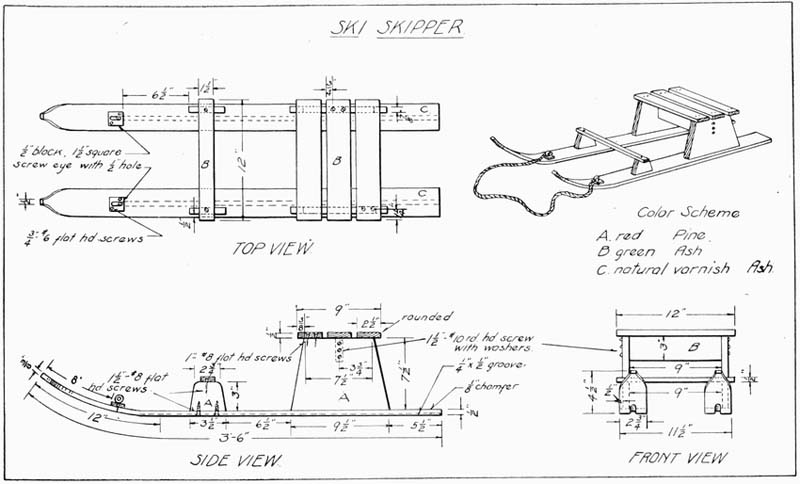 SKI SKIPPER
6½"
1½"
C
½" block, 1½" square
screw eye with ½" hole
B
12"
B
C
¾"-#6 flat hd screws
TOP VIEW
Color Scheme
A. red Pine
B green Ash
C. natural varnish Ash.
9"
2½"
rounded
1½"-#10 rd hd screw
with washers.
1"-#8 flat hd screws
2¾"
1½"-#8 flat
hd screws.
8"
3"
A
3¾"
7½"
A
7½"
¼" x ½" groove
⅛" chamfer
½"
12"
3½"
6½"
9½"
5½"
3'-6"
SIDE VIEW.
12"
B
3"
9"
4½"
9"
2¾"
11½"
FRONT VIEW